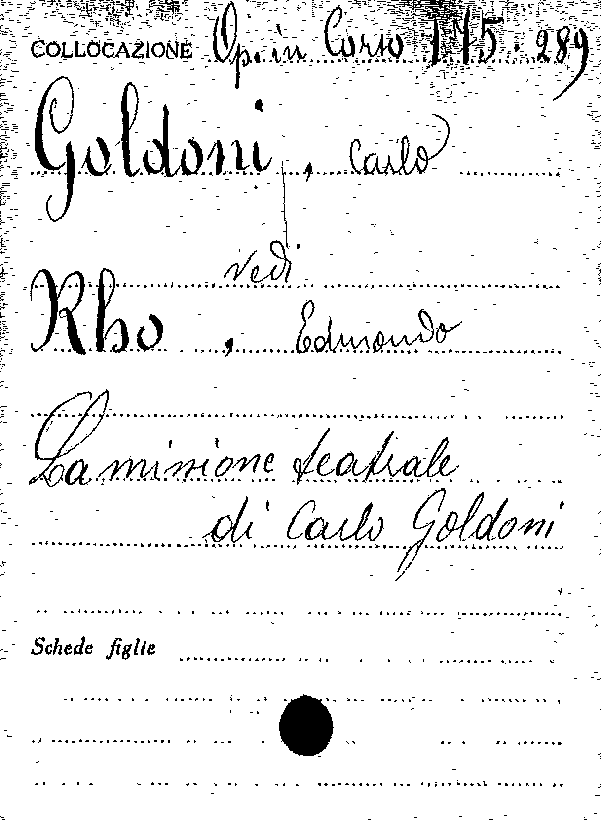 COLLOCAZIONE Op. in Corso 175.289
Goldoni, Carlo
Vedi
Rho, Edmondo
La missione teatrale
di Carlo Goldoni
Schede figlie